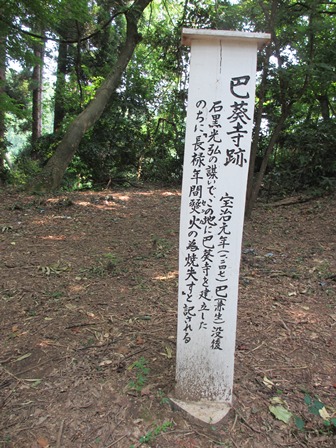 巴葵寺跡
宝治元年(一二四七)巴(兼生)没後
石黒光弘の謀いで、この地に巴葵寺を建立した
のちに「長禄年間雙火の為焼失す」と記される